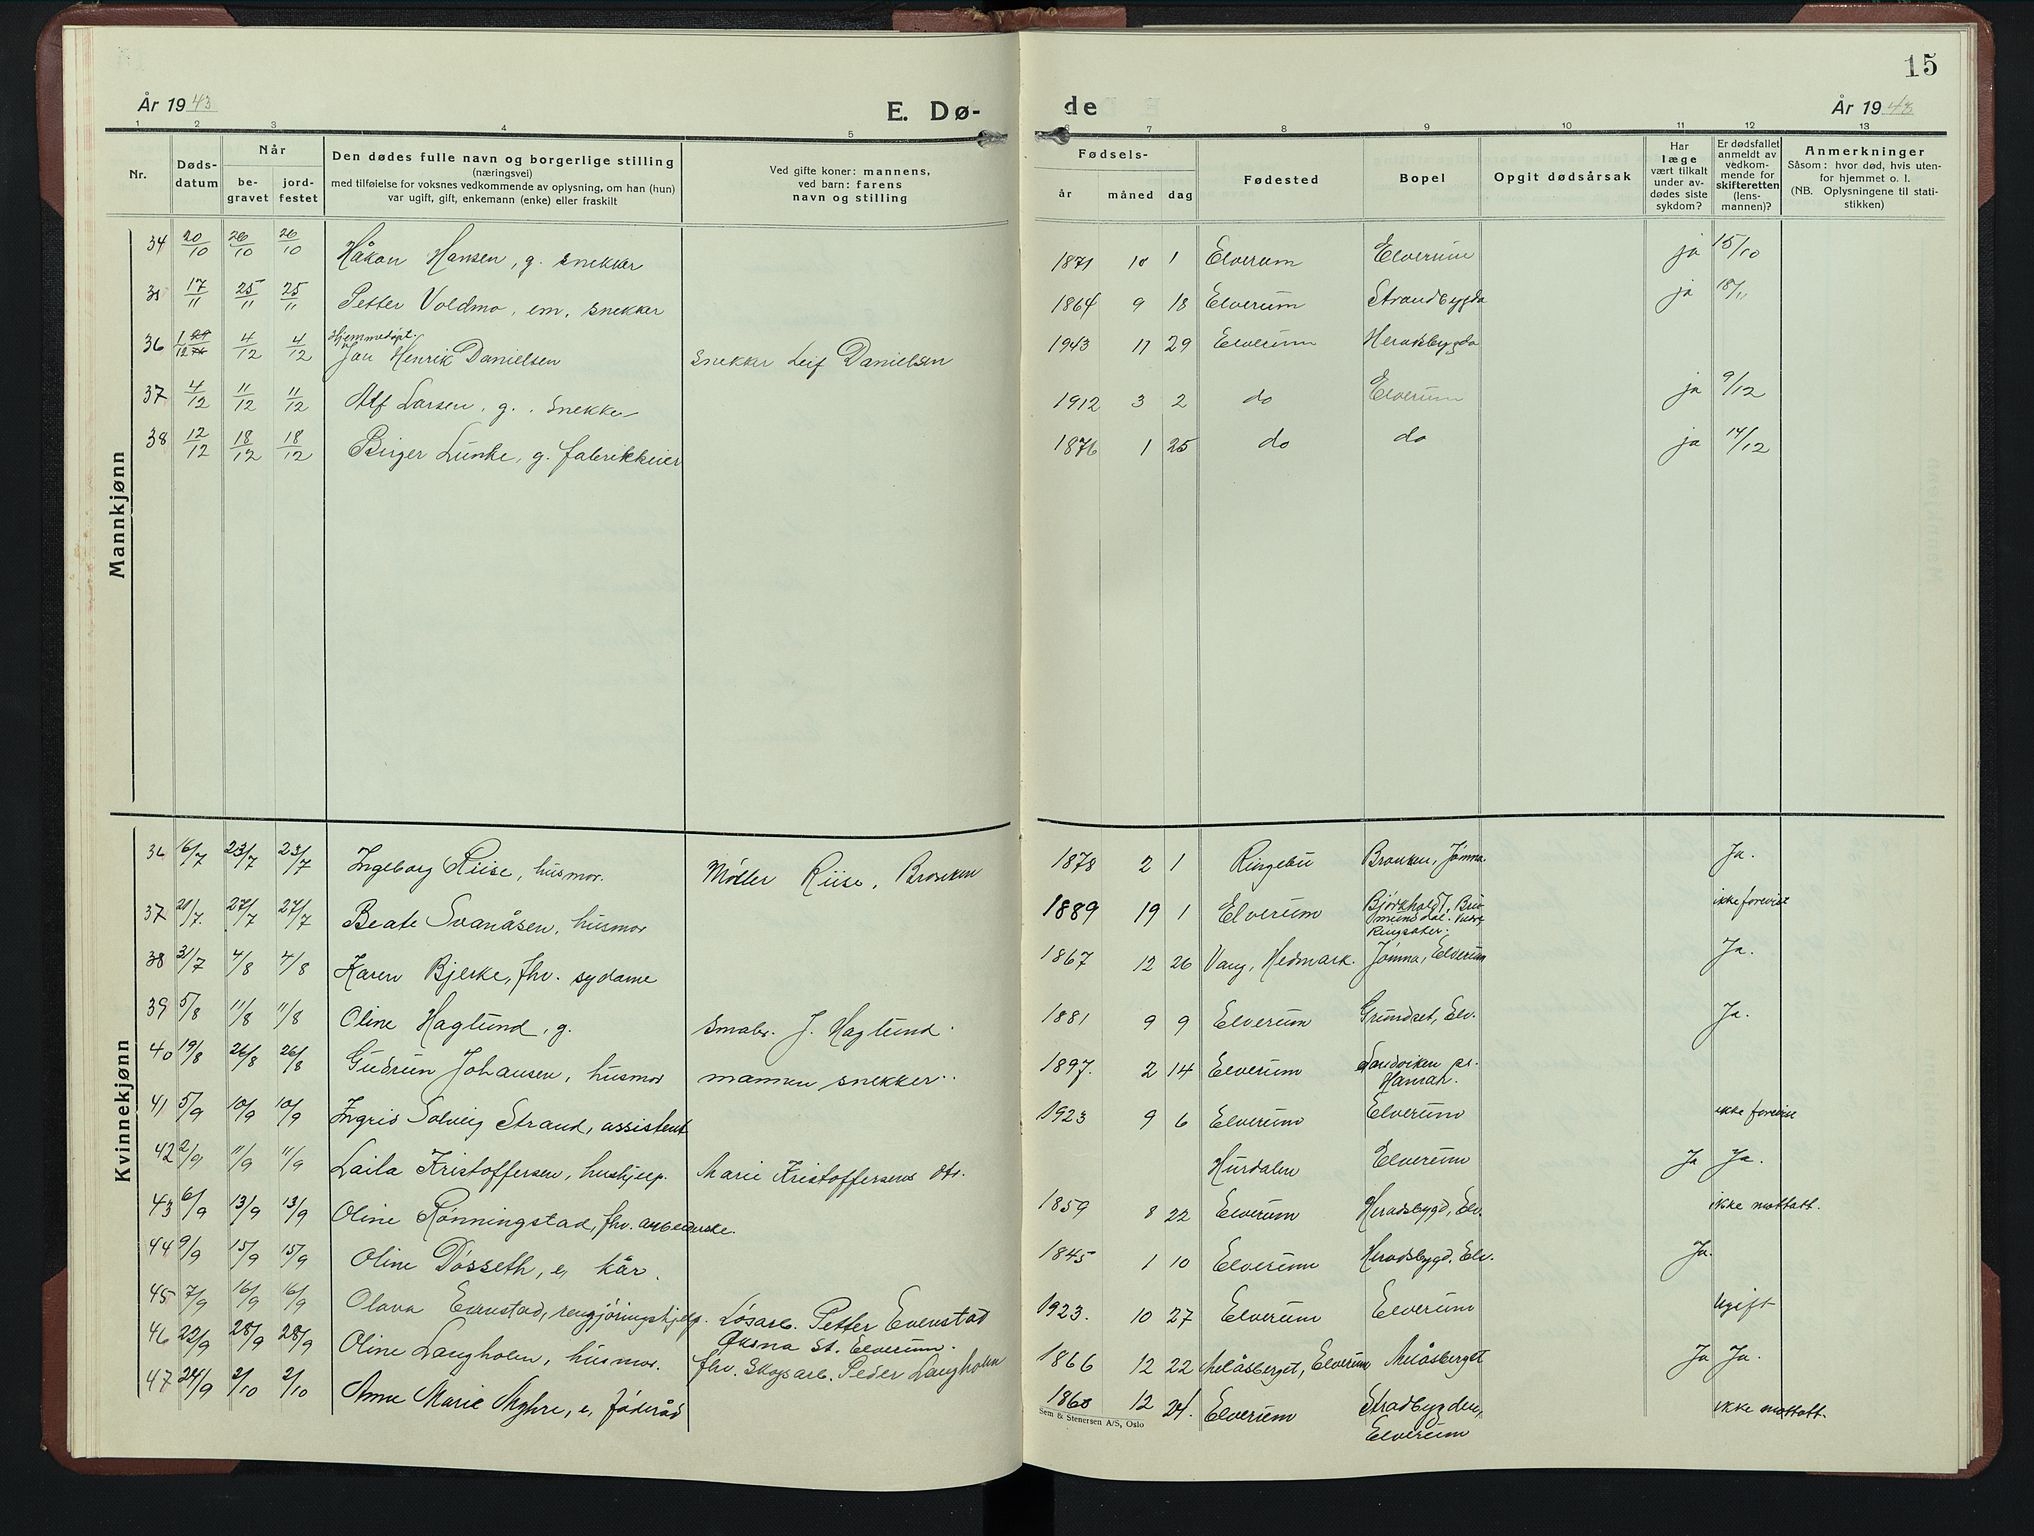 15
År 1943
E. Dø-
de
År 1943
1 2 3 4 5 6 7 8 9 10 11 12 13
Nr.
Døds-
datum
Når
be-
gravet
jord-
festet
Den dødes fulle navn og borgerlige stilling
(næringsvei)
med tilføielse for voksnes vedkommende av oplysning, om han (hun)
var ugift, gift, enkemann (enke) eller fraskilt
Ved gifte koner: mannens,
ved barn: farens
navn og stilling
Fødsels-
år måned dag
Fødested
Bopel
Opgit dødsårsak
Har
læge
vært tilkalt
under av-
dødes siste
sykdom?
Er dødsfallet
anmeldt av
vedkom-
mende for
skifteretten
(lens-
mannen)?
Anmerkninger
Såsom: hvor død, hvis uten-
for hjemmet o. l.
(NB. Oplysningene til stati-
stikken)
Mannkjønn
34 20/10 26/10 26/10 Håkon Hansen, g. snekker 1871 10 1 Elverum Elverum ja 15/10
35 17/11 25/11 25/11 Petter Voldmo, em. snekker 1864 9 18 Elverum Strandbygda ja 18/11
Hjemmedøpt.
36 1/12 4/12 4/12 Jan Henrik Danielsen snekker Leif Danielsen 1943 11 29 Elverum Heradsbygda
37 4/12 11/12 11/12 Alf Larsen, g. snekker 1912 3 2 do Elverum ja 9/12
38 12/12 18/12 18/12 Birger Lunke, g. fabrikkeier 1876 1 25 do do ja 14/12
Kvinnekjønn
36 16/7 23/7 23/7 Ingeborg Riise, husmor. Møller Riise, Bronken 1878 2 1 Ringebu Bronken, Jømna Ja.
37 21/7 27/7 27/7 Beate Svanåsen, husmor 1889 19 1 Elverum Bjørkholdt, Bru-
munddal.
Ringsaker. ikke forevist
38 31/7 4/8 4/8 Karen Bjerke, fhv. sydame 1867 12 26 Vang, Hedmark. Jømna, Elverum Ja.
39 5/8 11/8 11/8 Oline Haglund, g. småbr. J. Haglund. 1881 9 9 Elverum Grundset, Elv. Ja.
40 19/8 26/8 26/8 Gudrun Johansen, husmor mannen snekker. 1897. 2 14 Elverum Sandviken pr.
Hamar.
41 5/9 10/9 10/9 Ingrid Solveig Strand, assistent 1923 9 6 Elverum Elverum ikke forevist
42 2/9 11/9 11/9 Laila Kristoffersen, hushjelp. Marie Kristoffersens dtr. Hurdalen Elverum Ja Ja.
43 6/9 13/9 13/9 Oline Rønningstad, fhv. arbeiderske. 1859 8 22 Elverum Heradsbygd, Elv. ikke mottatt.
44 9/9 15/9 15/9 Oline Døsseth, e, kår. 1845 1 10 Elverum Heradsbygd, Elv. Ja.
45 7/9 16/9 16/9 Olava Evenstad, rengjøringshjelp. Løsarb. Petter Evenstad
Øksna St. Elverum. 1923. 10 27 Elverum Elverum Ugift
46 22/9 28/9 28/9 Oline Langholen, husmor. fhv. skogsarb. Peder Langholen 1866 12 22 Melåsberget, Elverum Melåsberget Ja Ja.
47 24/9 2/10 2/10 Anna Marie Myhre, e, føderåd 1868 12 24. Elverum Stradbygden,
Elverum ikke mottatt.
Sem & Stenersen A/S, Oslo